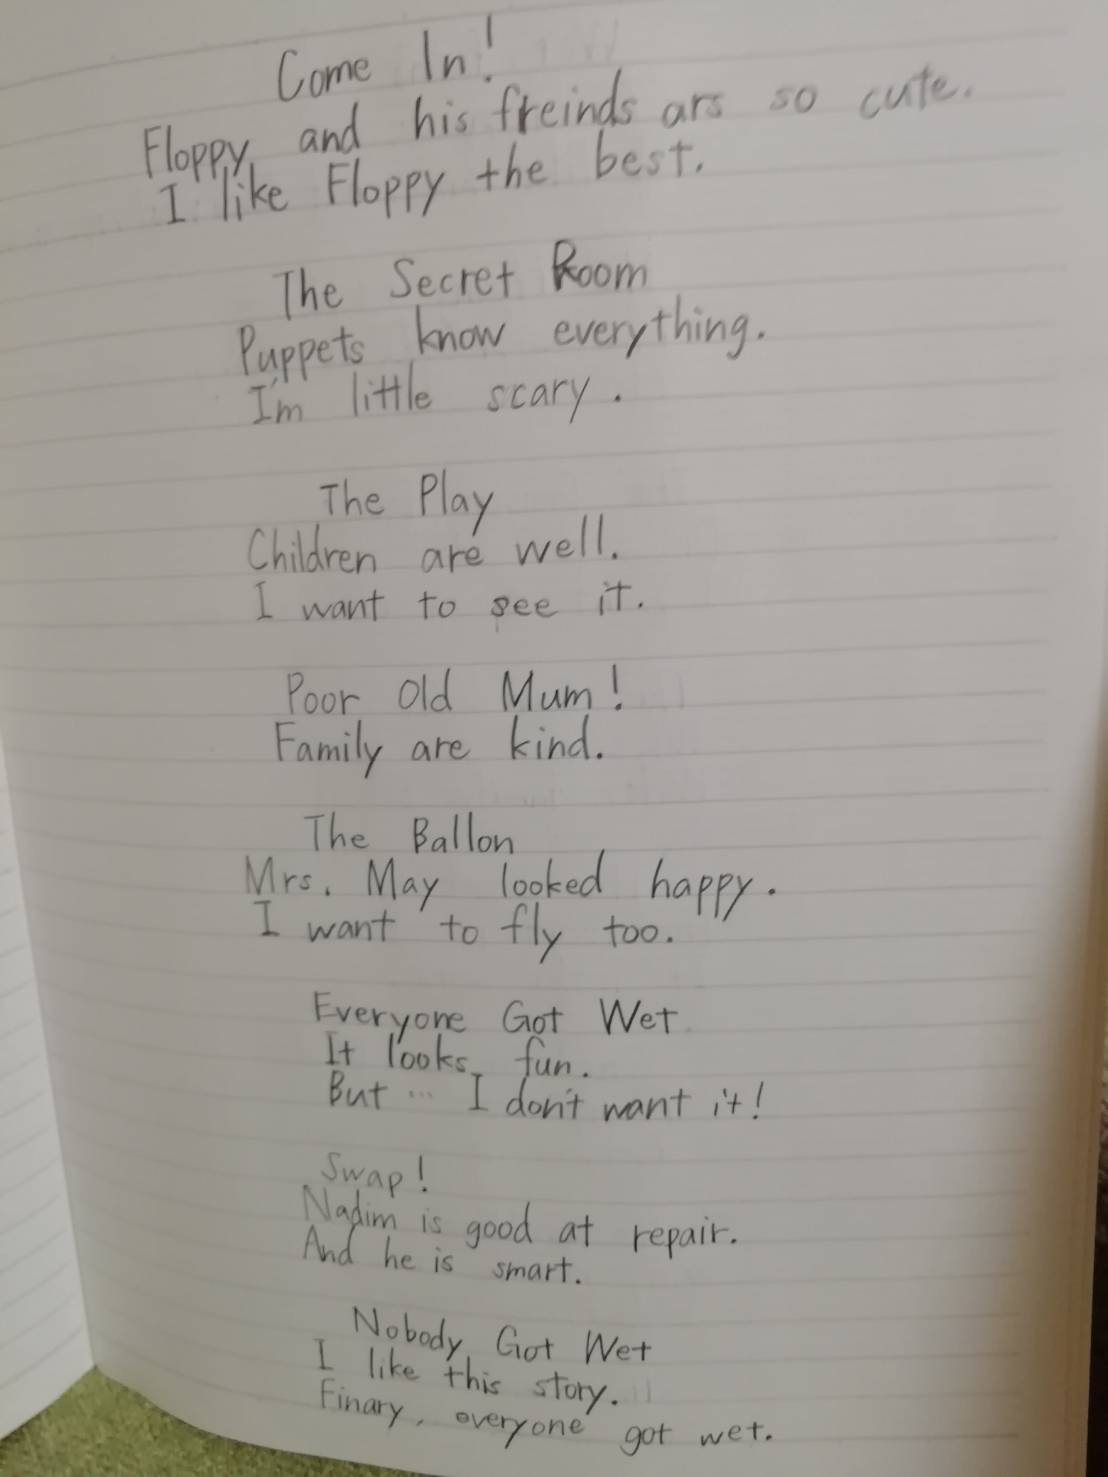 Come In!
Floppy and his freinds ars so cute.
I like Floppy the best.
The Secret Room
Puppets know everything.
I'm little scary.
The Play
Children are well.
I want to see it.
Poor Old Mum!
Family are kind.
The Ballon
Mrs. May looked happy.
I want to fly too.
Everyone Got Wet
It looks fun.
But … I don't want it!
Swap!
Nadim is good at repair.
And he is smart.
Nobody Got Wet
I like this story.
Finary, everyone got wet.